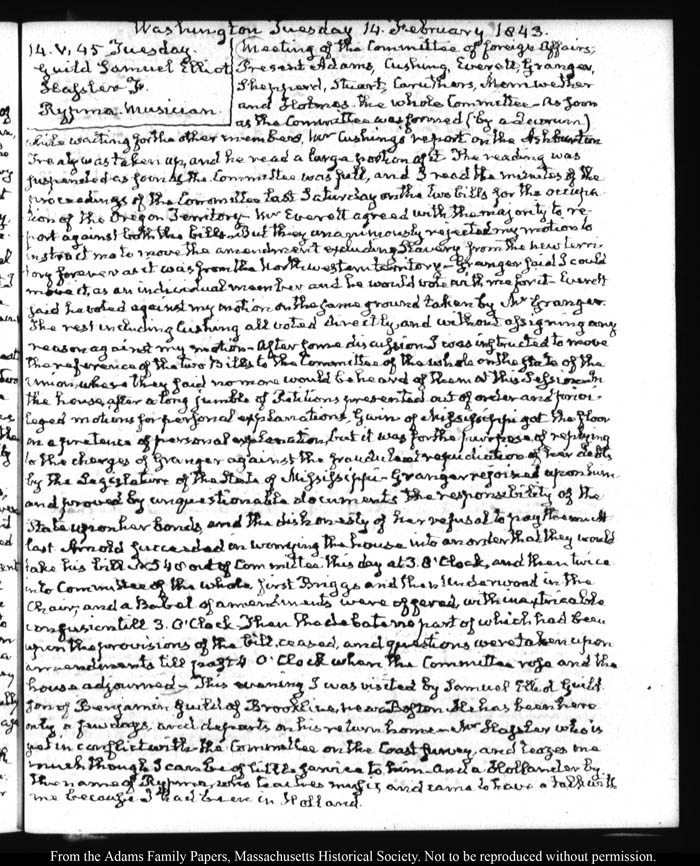 Washington Tuesday 14. February 1843.
14. V. 45 Tuesday.
Guild Samuel Elliot
Hassler F.
Rypma. Musician.
Meeting of the Committee of foreign Affairs;
Present Adams, Cushing, Everett, Granger,
Shepperd, Stuart, Caruthers, Meriwether
and Holmes. the whole Committee - As soon
as the Committee was formed (by a quorum)
while waiting for the other members, Mr Cushing's report on the Ashburton
Treaty was taken up, and he read a large portion of it. The reading was
suspended as soon as the Committee was full, and I read the minutes of the
proceedings of the Committee last Saturday on the two bills for the occupa-
tion of the Oregon Territory - Mr Everett agreed with the majority to re-
port against both the bills - But they unanimously rejected my motion to
instruct me to move the amendment excluding Slavery from the new terri-
tory forever as it was from the Northwestern territory - Granger said I could
move it, as an individual member and he would vote with me for it - Everett
said he voted against my motion on the same ground taken by Mr Granger.
The rest including Cushing all voted directly, and without assigning any
reason against my motion - After some discussion I was instructed to move
the reference of the two Bills to the Committee of the whole on the state of the
Union, where they said no more would be heard of them at this Session - In
the house, after a long jumble of Petitions presented out of order and privi-
leged motions for personal explanations, Gwin of Mississippi got the floor
on a pretence of personal explanation, but it was for the purpose of replying
to the charges of Granger against the fraudulent repudiation of her debts
by the Legislature of the State of Mississippi - Granger rejoined upon him
and proved by unquestionable documents the responsibility of the
State upon her bonds, and the dishonesty of her refusal to pay them - At
last Arnold succeeded in worrying the house into an order that they would
take his bill N. 548 out of Committee this day at 3. O'Clock, and then twice
into Committee of the whole, first Briggs and then Underwood in the
Chair; and a Babel of amendments were offered, with inextricable
confusion till 3. O'Clock. Then the debate no part of which had been
upon the provisions of the bill, ceased, and questions were taken upon
amendments till past 4 O'Clock when the Committee rose and the
house adjourned - This evening I was visited by Samuel Elliot Guild
son of Benjamin Guild of Brookline, near Boston. He has been here
only a few days, and departs on his return home - Mr Hassler who is
yet in conflict with the Committee on the Coast Survey, and teazes me
much though I can be of little service to him - And a Hollander by
the name of Rypma, who teaches music and came to have a talk with
me because I had been in Holland.
From the Adams Family Papers, Massachusetts Historical Society. Not to be reproduced without permission.